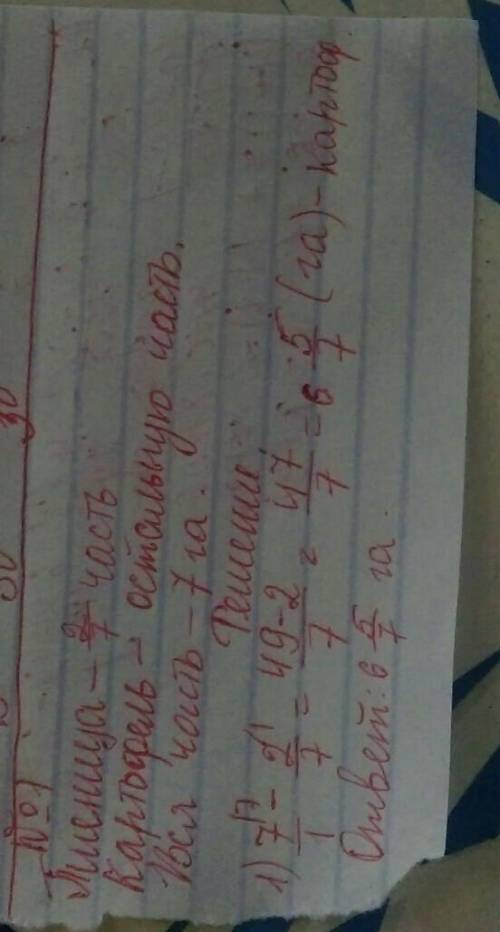 №1
Пшеница – 2/7 часть
Картофель – остальную часть.
Вся часть – 7 га.
Решение
1) 7/1 - 2/7 = 49-2/7 = 47/7 = 6 5/7 (га) – картоф.
Ответ: 6 5/7 га.